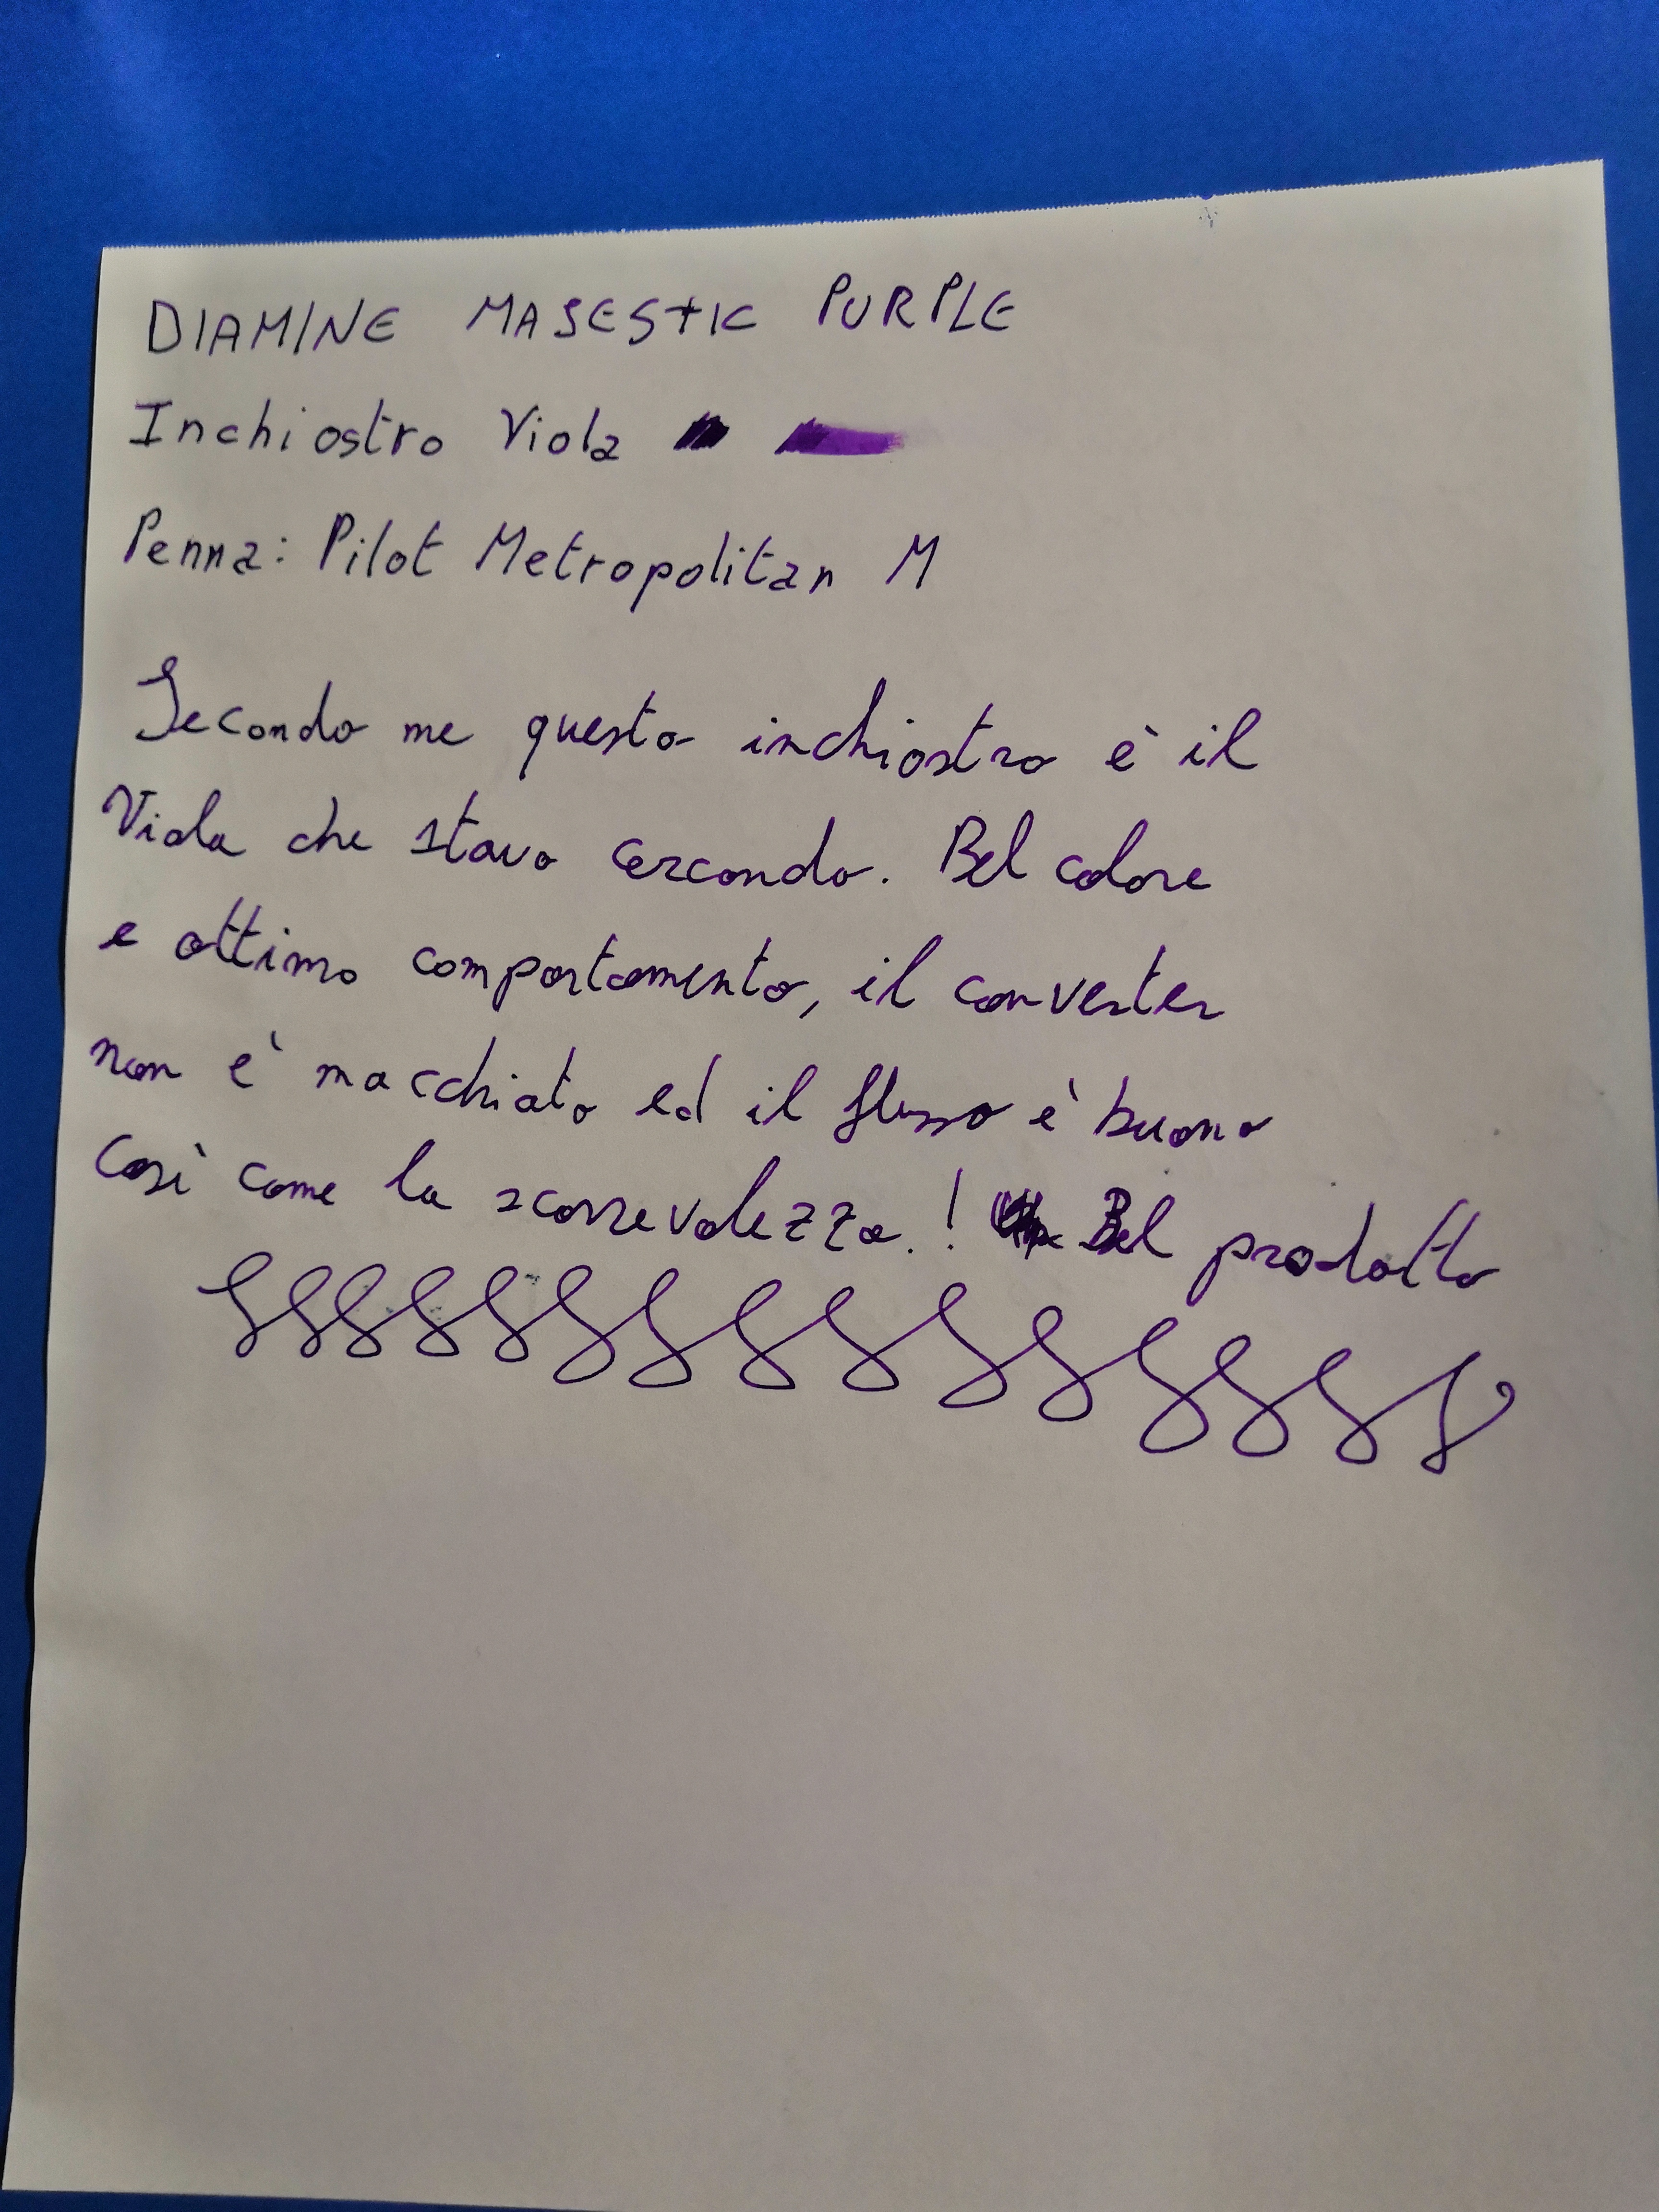 DIAMINE MAJESTIC PURPLE
Inchiostro Viola
Penna: Pilot Metropolitan M
Secondo me questo inchiostro è il
Viola che stavo cercando. Bel colore
e ottimo comportamento, il converter
non è macchiato ed il flusso è buono
così come la scorrevolezza.! Bel prodotto